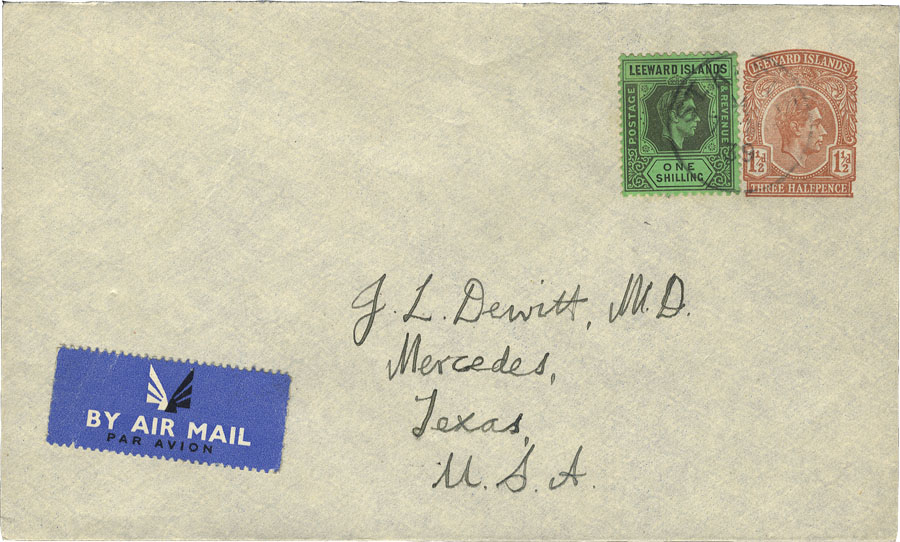 LEEWARD ISLANDS
POSTAGE
& REVENUE
ONE
SHILLING
LEEWARD ISLANDS
1½d 1½d
THREE HALFPENCE
39
J. L. Dewitt, M.D.
Mercedes,
Texas,
U. S. A.
BY AIR MAIL
PAR AVION